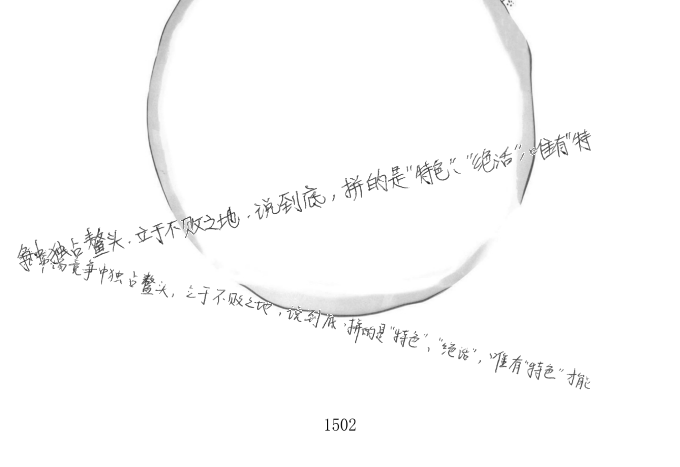 争中独占鳌头.立于不败之地.说到底,拼的是"特色"、"绝活",唯有"特
市场竞争中独占鳌头,立于不败之地,说到底,拼的是"特色"、"绝活",唯有"特色"才能
1502